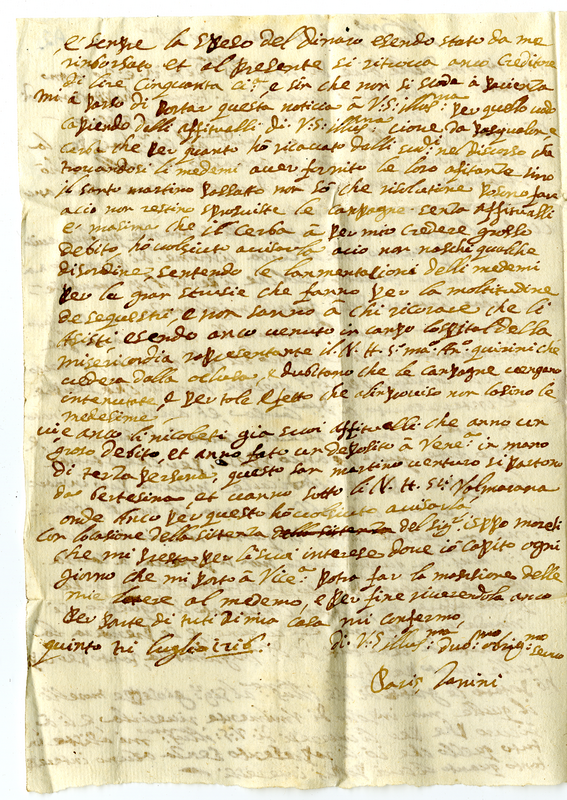 e sempre la speso del dinaro esendo stato da me
rinborsato et al presente si ritrova anco creditore
di lire cinquanta e sin che non si scoda à pacienza
mi à parso di portar questa noticia à V: S: illus:ma per quello vado
capiendo delli affitualli di V: S: illus:ma cioue da pasqualin e
Cerba che per quanto hò ricavato delli nel discorso che
trovandosi li medemi aver fornito le loro afitanze
il santo martino passato non sò che risolatine posino fare
aciò non restino sproviste le canpagne senza affitualli
e masima che il Cerba à per mio credere grosso
debito, hò volsiuto avisarla aciò non naschi qualche
disordine, sentendo le lanmentacioni delli medemi
per le gran che fanno per la moltitudine
de sequestri e non sanno à chi ricorare che li
asisti esendo anco venuto in canpo l'ospital della
misericordia rapresentante il N. H. S: ma: An: quirini che
dalla, e dubitano che le canpagne vengano
intenutate, e per tole efetto che alinproviso non lasino le
medesime
vi è anco li nicoleti già suoi affitualli che anno un
groso debito, et anno fato un deposito à Vene:a in mano
di terza persona, questo san martino venturo si partono
da bertesina, et vanno sotto li N. H. S:ri Valmarana
onde anco per questo hò volsiuto avisarla
con l'ocasione della sistenza del Sig:r isepo moreli
che mi presta per li suoi interese dove iò capito ogni
giorno che mi porto à Vice:a potrà far la mosione delle
mie al medemo, e per fine riverendola anco
per parte di tuti di mia casa mi confermo
quinto li luglio 1716: di V: S: illus:ma duo:mo oblig:mo servo
Paris Zanini